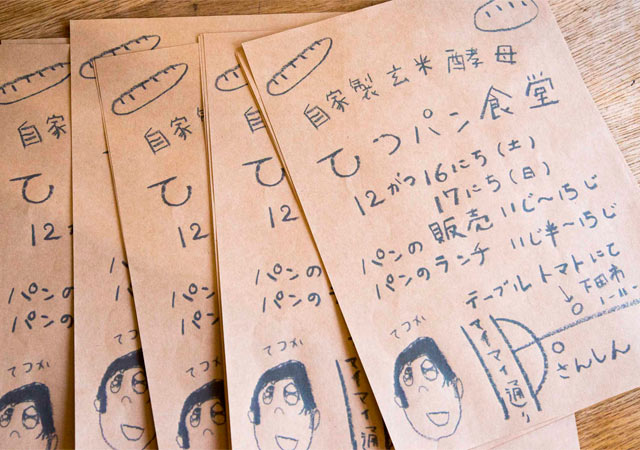 自家製玄米酵母
てつパン食堂
12がつ16にち(土)
17にち(日)
パンの販売 11じ〜15じ
パンのランチ 11じ半〜15じ
テーブルトマトにて
下田市
てつか
マイマイ通り
さんしん
自家
て
12
パンの
パンの
てつか
マイマイ通
自家
て
12
パン
パン
てつか
自家
て
12が
パンの
パンの
てつか